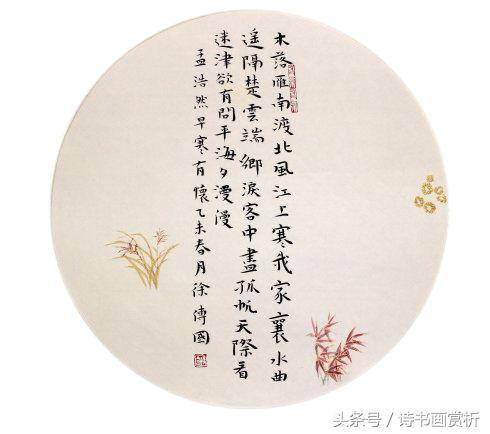 木落雁南渡北風江上寒我家襄水曲
遥隔楚雲端鄉淚客中盡孤帆天際看
迷津欲有問平海夕漫漫
孟浩然早寒有懷乙未春月徐傳國
头条号/诗书画赏析